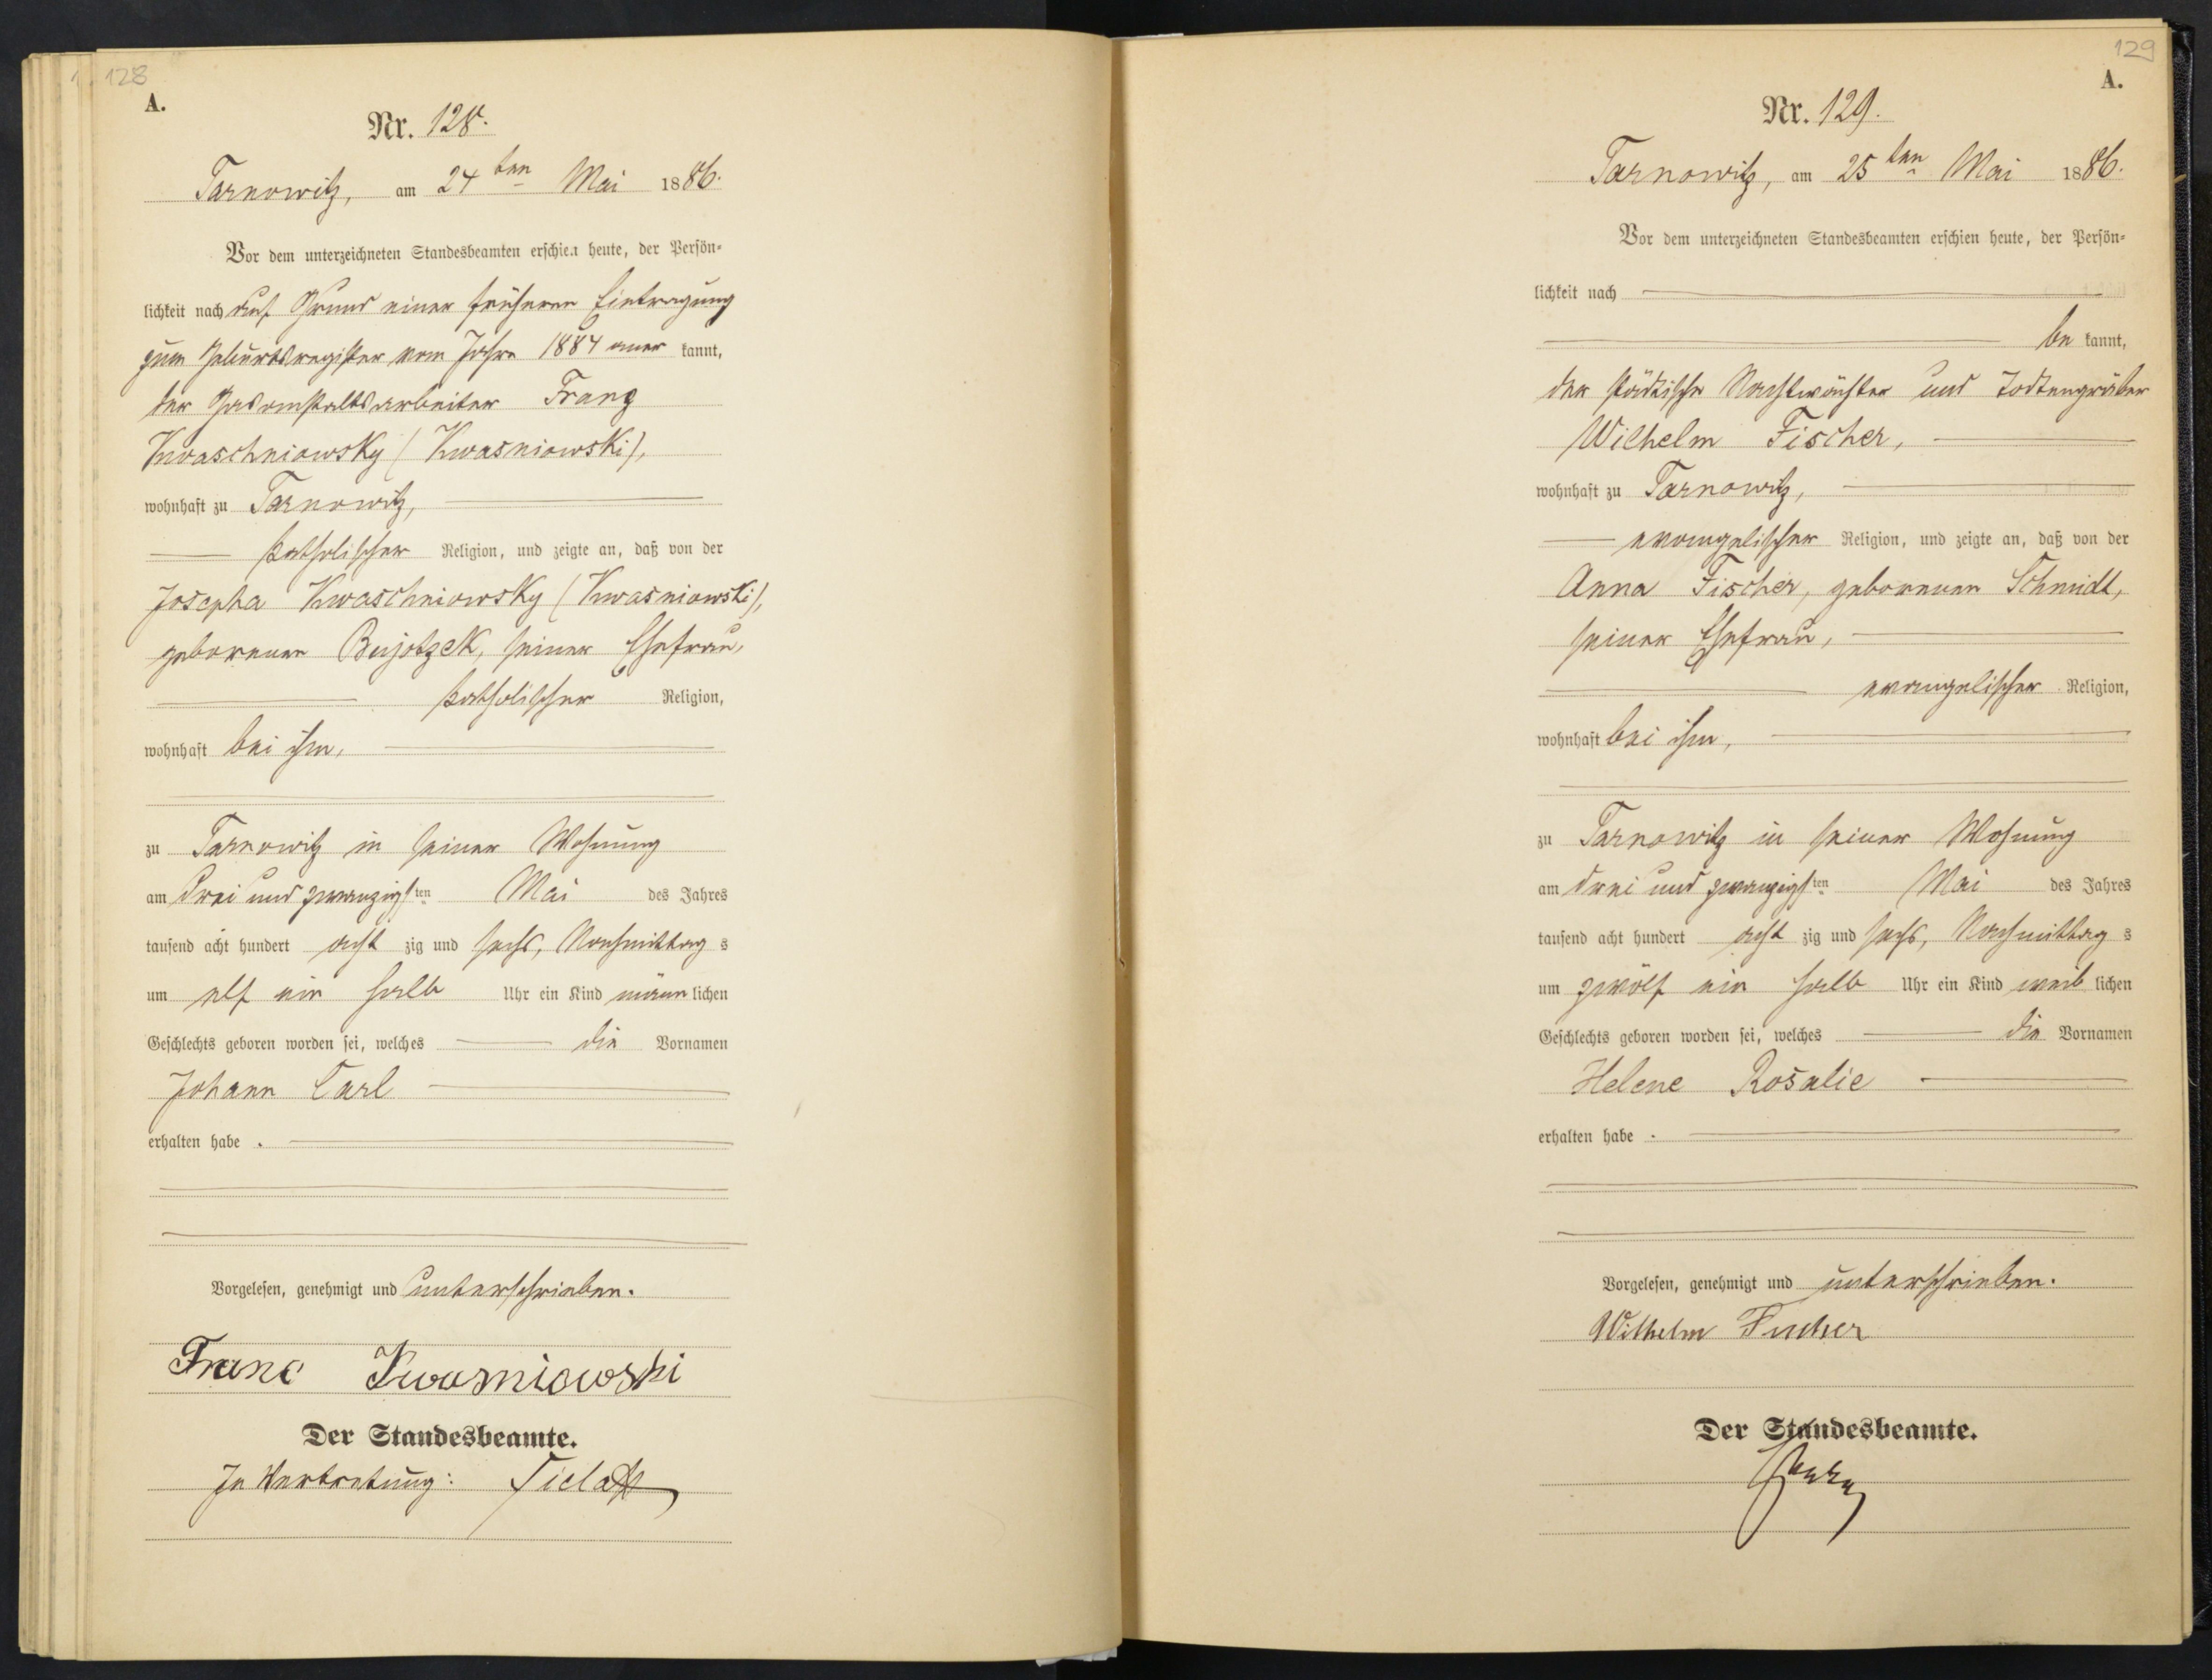 128
A.
Nr. 128.
Tarnowitz, am 24ten Mai 1886.
Vor dem unterzeichneten Standesbeamten erschien heute, der Persön-
lichkeit nach auf Grund einer früheren Eintragung
zum Geburtsregister vom Jahre 1884 aner kannt,
der Gasanstaltsarbeiter Franz
Kwaschniowsky (Kwasniowski),
wohnhaft zu Tarnowitz,
katholischer Religion, und zeigte an, daß von der
Josepha Kwaschniowsky (Kwasniowski),
geborenen Bujotzek, seiner Ehefrau,
katholischer Religion,
wohnhaft bei ihm,
zu Tarnowitz in seiner Wohnung
am drei und zwanzigsten Mai des Jahres
tausend acht hundert acht zig und sechs, Nachmittag s
um elf ein halb Uhr ein Kind männ lichen
Geschlechts geboren worden sei, welches die Vornamen
Johann Carl
erhalten habe.
Vorgelesen, genehmigt und unterschrieben.
Franc Kwasniowski
Der Standesbeamte.
In Vertretung:
129
A.
Nr. 129.
Tarnowitz, am 25ten Mai 1886.
Vor dem unterzeichneten Standesbeamten erschien heute, der Persön-
lichkeit nach
be kannt,
der städtische Nachtwächter und Todtengräber
Wilhelm Fischer,
wohnhaft zu Tarnowitz,
evangelischer Religion, und zeigte an, daß von der
Anna Fischer, geborenen Schmidt,
seiner Ehefrau,
evangelischer Religion,
wohnhaft bei ihm,
zu Tarnowitz in seiner Wohnung
am drei und zwanzigsten Mai des Jahres
tausend acht hundert acht zig und sechs, Nachmittag s
um zwölf ein halb Uhr ein Kind weib lichen
Geschlechts geboren worden sei, welches die Vornamen
Helene Rosalie
erhalten habe.
Vorgelesen, genehmigt und unterschrieben.
Wilhelm Fischer
Der Standesbeamte.